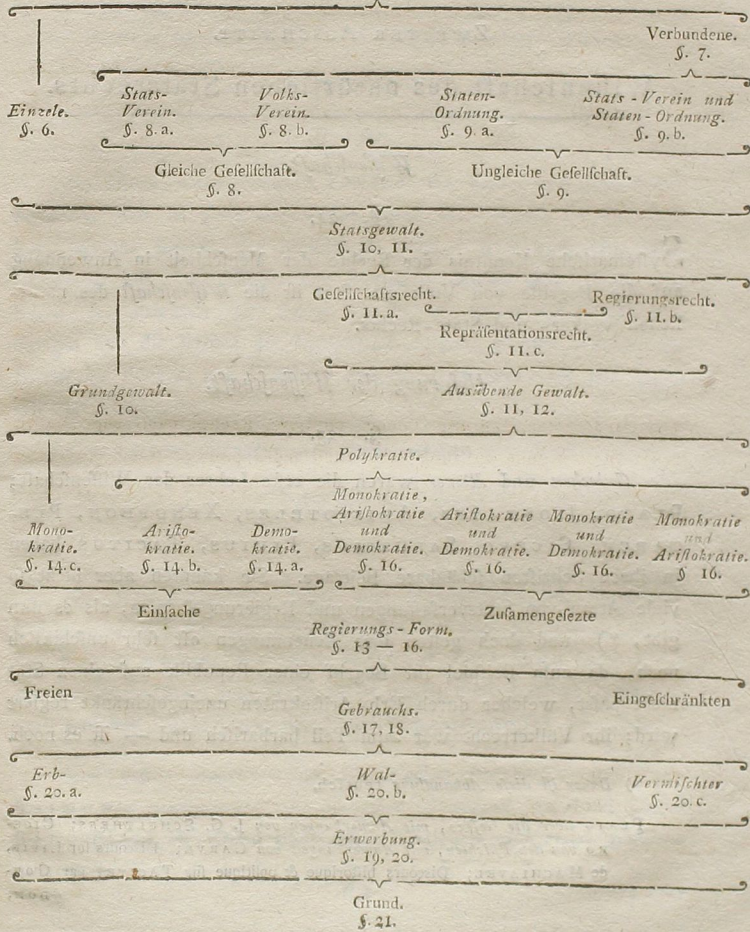 Verbundene.
§. 7.
Einzele.
§. 6.
Stats-
Verein.
§. 8. a.
Volks-
Verein.
§. 8. b.
Staten-
Ordnung.
§. 9. a.
Stats-Verein und
Staten-Ordnung.
§. 9. b.
Gleiche Geſellſchaft.
§. 8.
Ungleiche Geſellſchaft.
§. 9.
Statsgewalt.
§. 10, 11.
Geſellſchaftsrecht.
§. 11. a.
Regierungsrecht.
§. 11. b.
Repräſentationsrecht.
§. 11. c.
Grundgewalt.
§. 10.
Ausübende Gewalt.
§. 11, 12.
Polykratie.
Mono-
kratie.
§. 14. c.
Ariſto-
kratie.
§. 14. b.
Demo-
kratie.
§. 14. a.
Monokratie,
Ariſtokratie
und
Demokratie.
§. 16.
Ariſtokratie
und
Demokratie.
§. 16.
Monokratie
und
Demokratie.
§. 16.
Monokratie
und
Ariſtokratie.
§ 16.
Einfache
Zuſamengeſezte
Regierungs-Form.
§. 13 — 16.
Freien
Eingeſchränkten
Gebrauchs.
§. 17, 18.
Erb-
§. 20. a.
Wal-
§. 20. b.
Vermiſchter
§. 20. c.
Erwerbung.
§. 19, 20.
Grund.
§. 21.